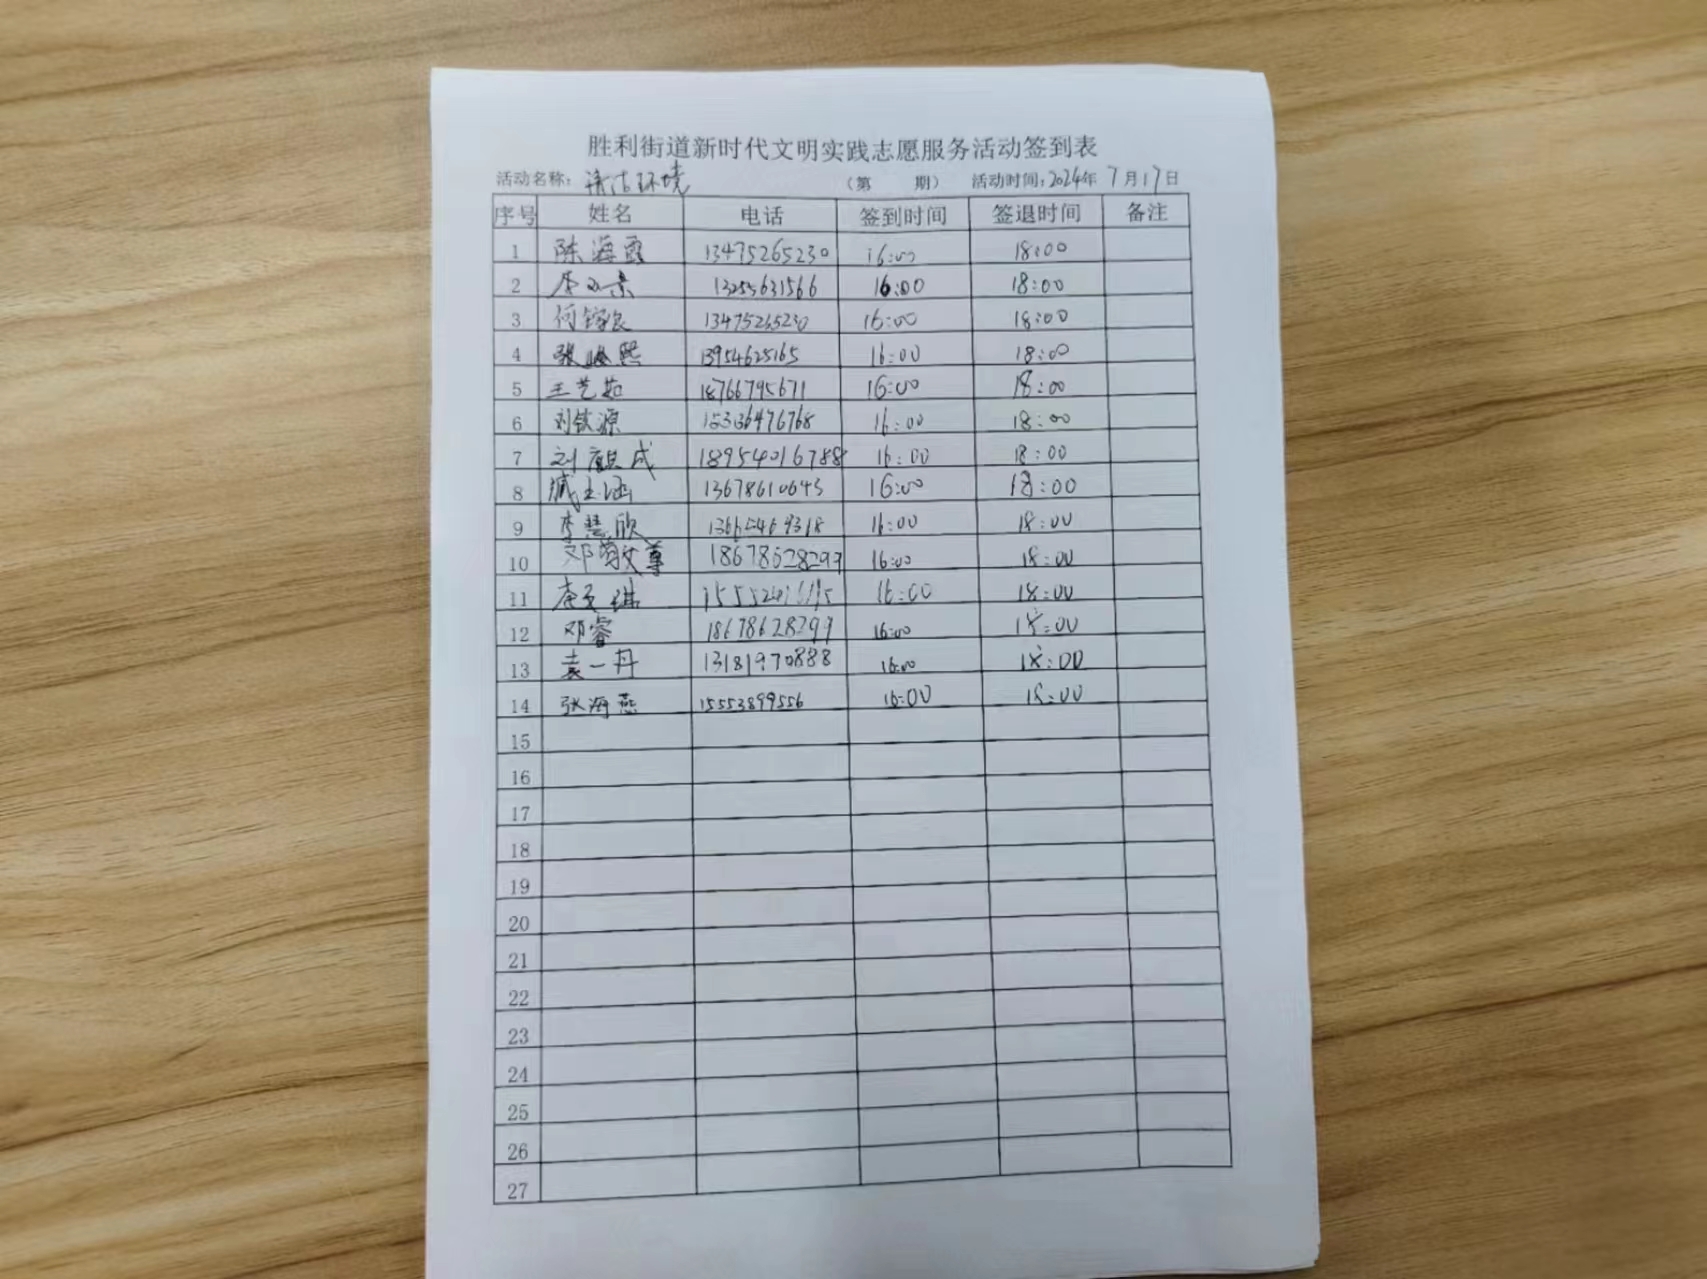 胜利街道新时代文明实践志愿服务活动签到表
活动名称：清洁环境 （第 期） 活动时间：2024年 7月17日
序号 姓名 电话 签到时间 签退时间 备注
1 陈海霞 13475265230 16:00 18:00
2 13255631566 16:00 18:00
3 何 13475265230 16:00 18:00
4 张 熙 13954625165 16:00 18:00
5 王艺茹 18766795671 16:00 18:00
6 刘钦源 15336476768 16:00 18:00
7 刘麒成 18954016788 16:00 18:00
8 臧 涵 13678610645 16:00 18:00
9 李慧欣 16:00 18:00
10 邓敬尊 18678628299 16:00 18:00
11 16:00 18:00
12 邓睿 18678628299 16:00 18:00
13 袁一丹 13181970888 16:00 18:00
14 张海燕 15553899556 16:00 18:00
15
16
17
18
19
20
21
22
23
24
25
26
27